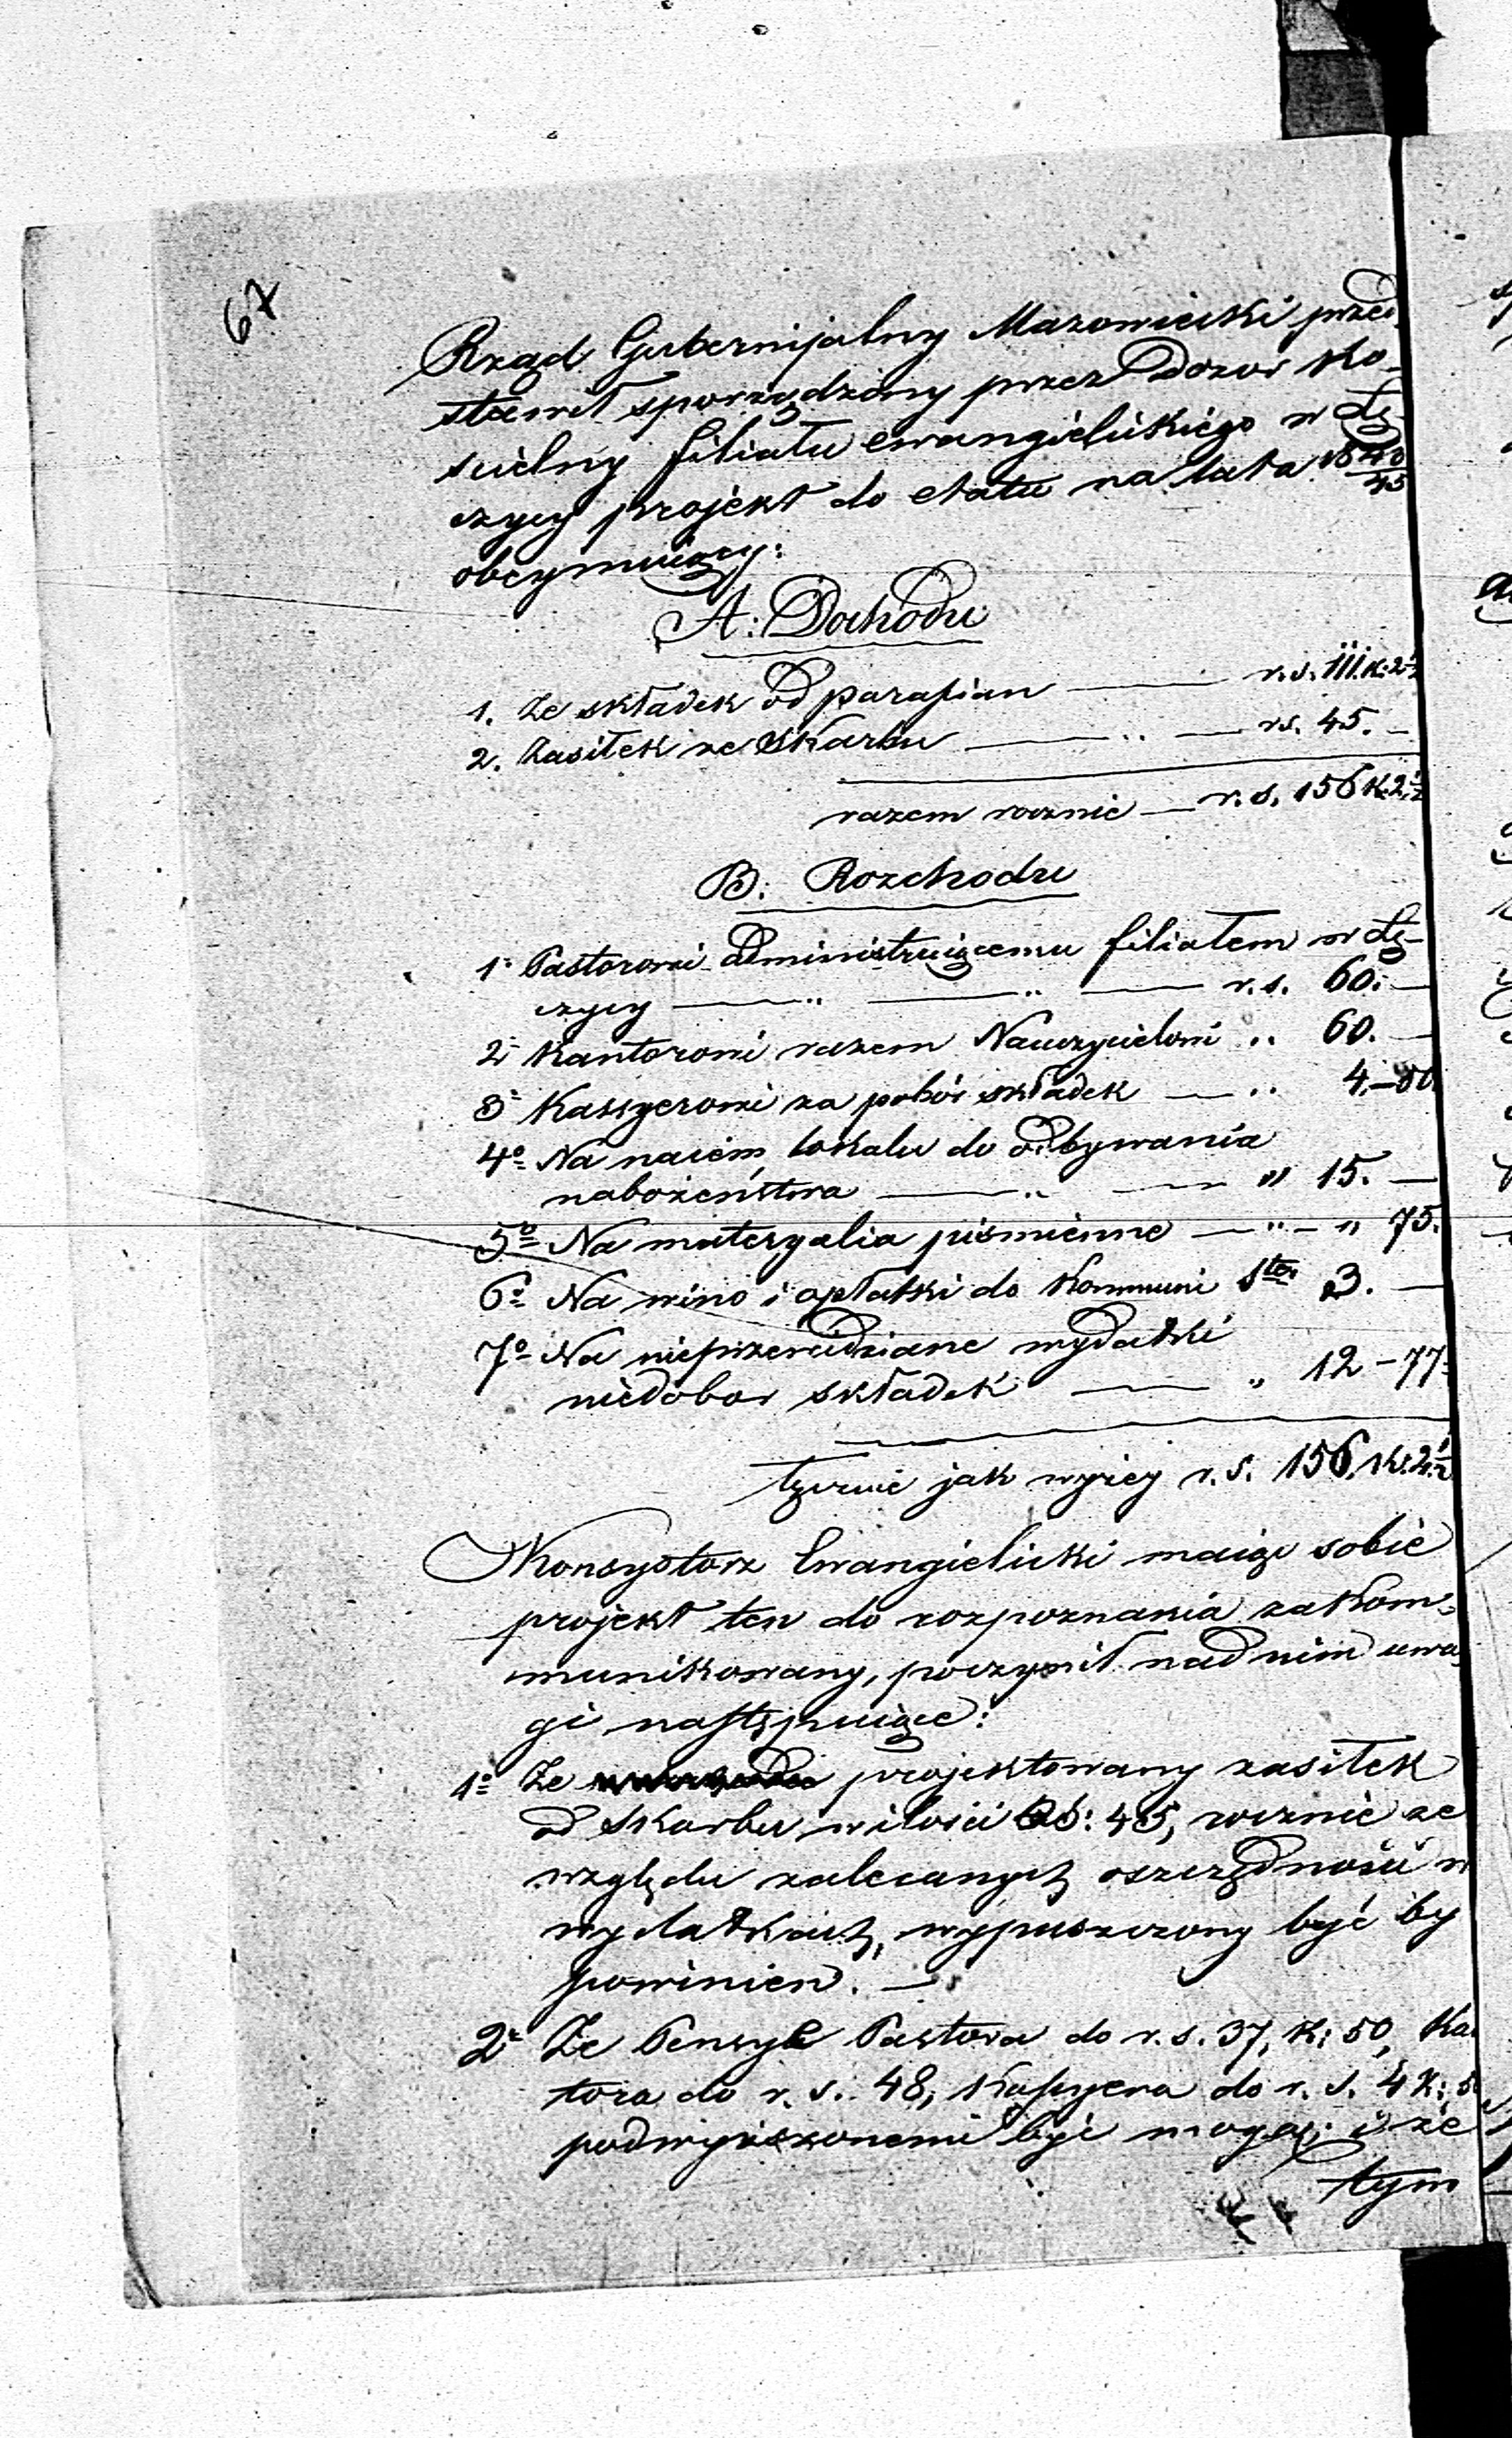 67
Rząd Gubernijalny Mazowiecki przed-
stawił sporządzony przez Dozór Ko-
ścielny filiału ewangielickiego w Łę-
czycy projekt do etatu na lata 1840/45
obeymuiący:
A: Dochodu
1. Ze składek od parafian — r.s. 111. k. 2½
2. Zasiłek ze Skarbu — „ — rs. 45. —
razem rocznie — r.s. 156 k. 2½
B: Rozchodu
1° Pastorowi administruiącemu filiałem w Łę-
czycy — „ — „ — r.s. 60. —
2° Kantorowi razem Nauczycielowi „ 60. —
3° Kassyerowi za pobór składek — „ 4.—50
4° Na naiem lokalu do odbywania
nabożeństwa — „ — „ 15. —
5° Na materyalia piśmienne — „ — „ 75.
6° Na wino i opłatki do Kommuni Stej 3. —
7° Na nieprzewidziane wydatki
niedobor składek — „ 12 – 77
Łącznie jak wyżey r.s. 156. k. 2½
Konsystorz Ewangielicki maiąc sobie
projekt ten do rozpoznania zakom-
munikowany, poczynił nad nim uwa-
gi następuiące:
1° Że projektowany zasiłek
od Skarbu w ilości RS: 45, rocznie ze
względu zalecanych oszczędności w
wydatkach, wypuszczony być by
powinien. —
2° Że Pensye Pastora do r.s. 37, k: 50, Kan
tora do r.s. 48, Kassyera do r.s. 4 k: 5
podwyższonemi być mogą; i że
tym